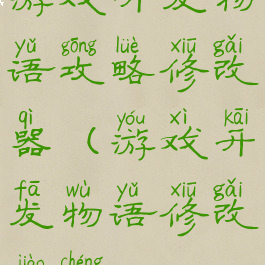 游戏开发物
yǔ gōng lüè xiū gǎi
语攻略修改
qì yóu xì kāi
器（游戏开
fā wù yǔ xiū gǎi
发物语修改
jiào chéng